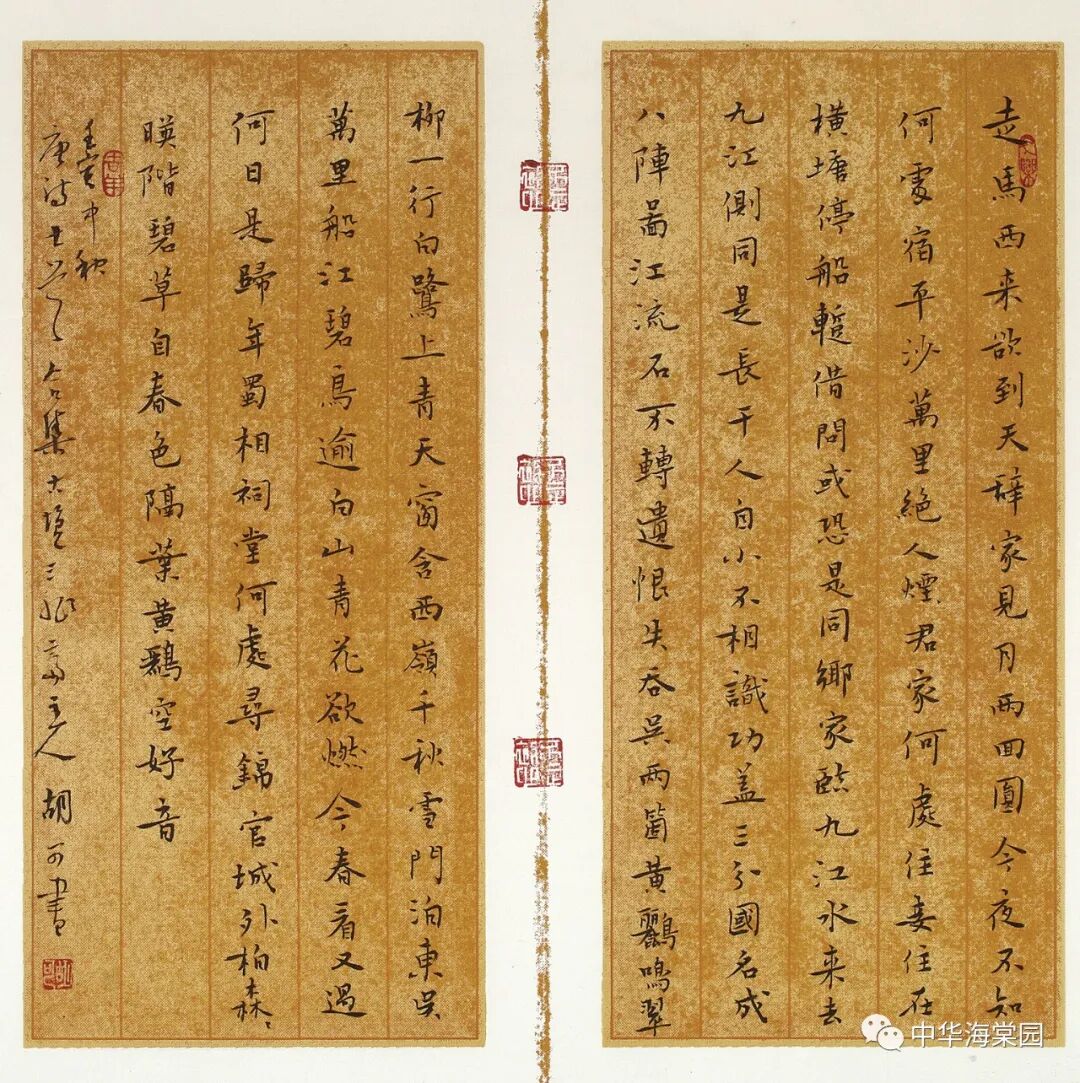 走馬西来欲到天辞家見月兩囬圓今夜不知
何處宿平沙萬里絕人煙君家何處住妾住在
横塘停船蹔借問或恐是同鄉家臨九江水来去
九江側同是長干人自小不相識功蓋三分國名成
八陣啚江流石不轉遺恨失吞吳兩箇黄鸝鳴翠
柳一行白鷺上青天窗含西嶺千秋雪門泊東吳
萬里船江碧鳥逾白山青花欲燃今春看又過
何日是歸年蜀相祠堂何處尋錦官城外柏森〻
暎階碧草自春色隔葉黄鸝空好音
壬寅中秋
唐诗 合集 主人胡可書
中华海棠园